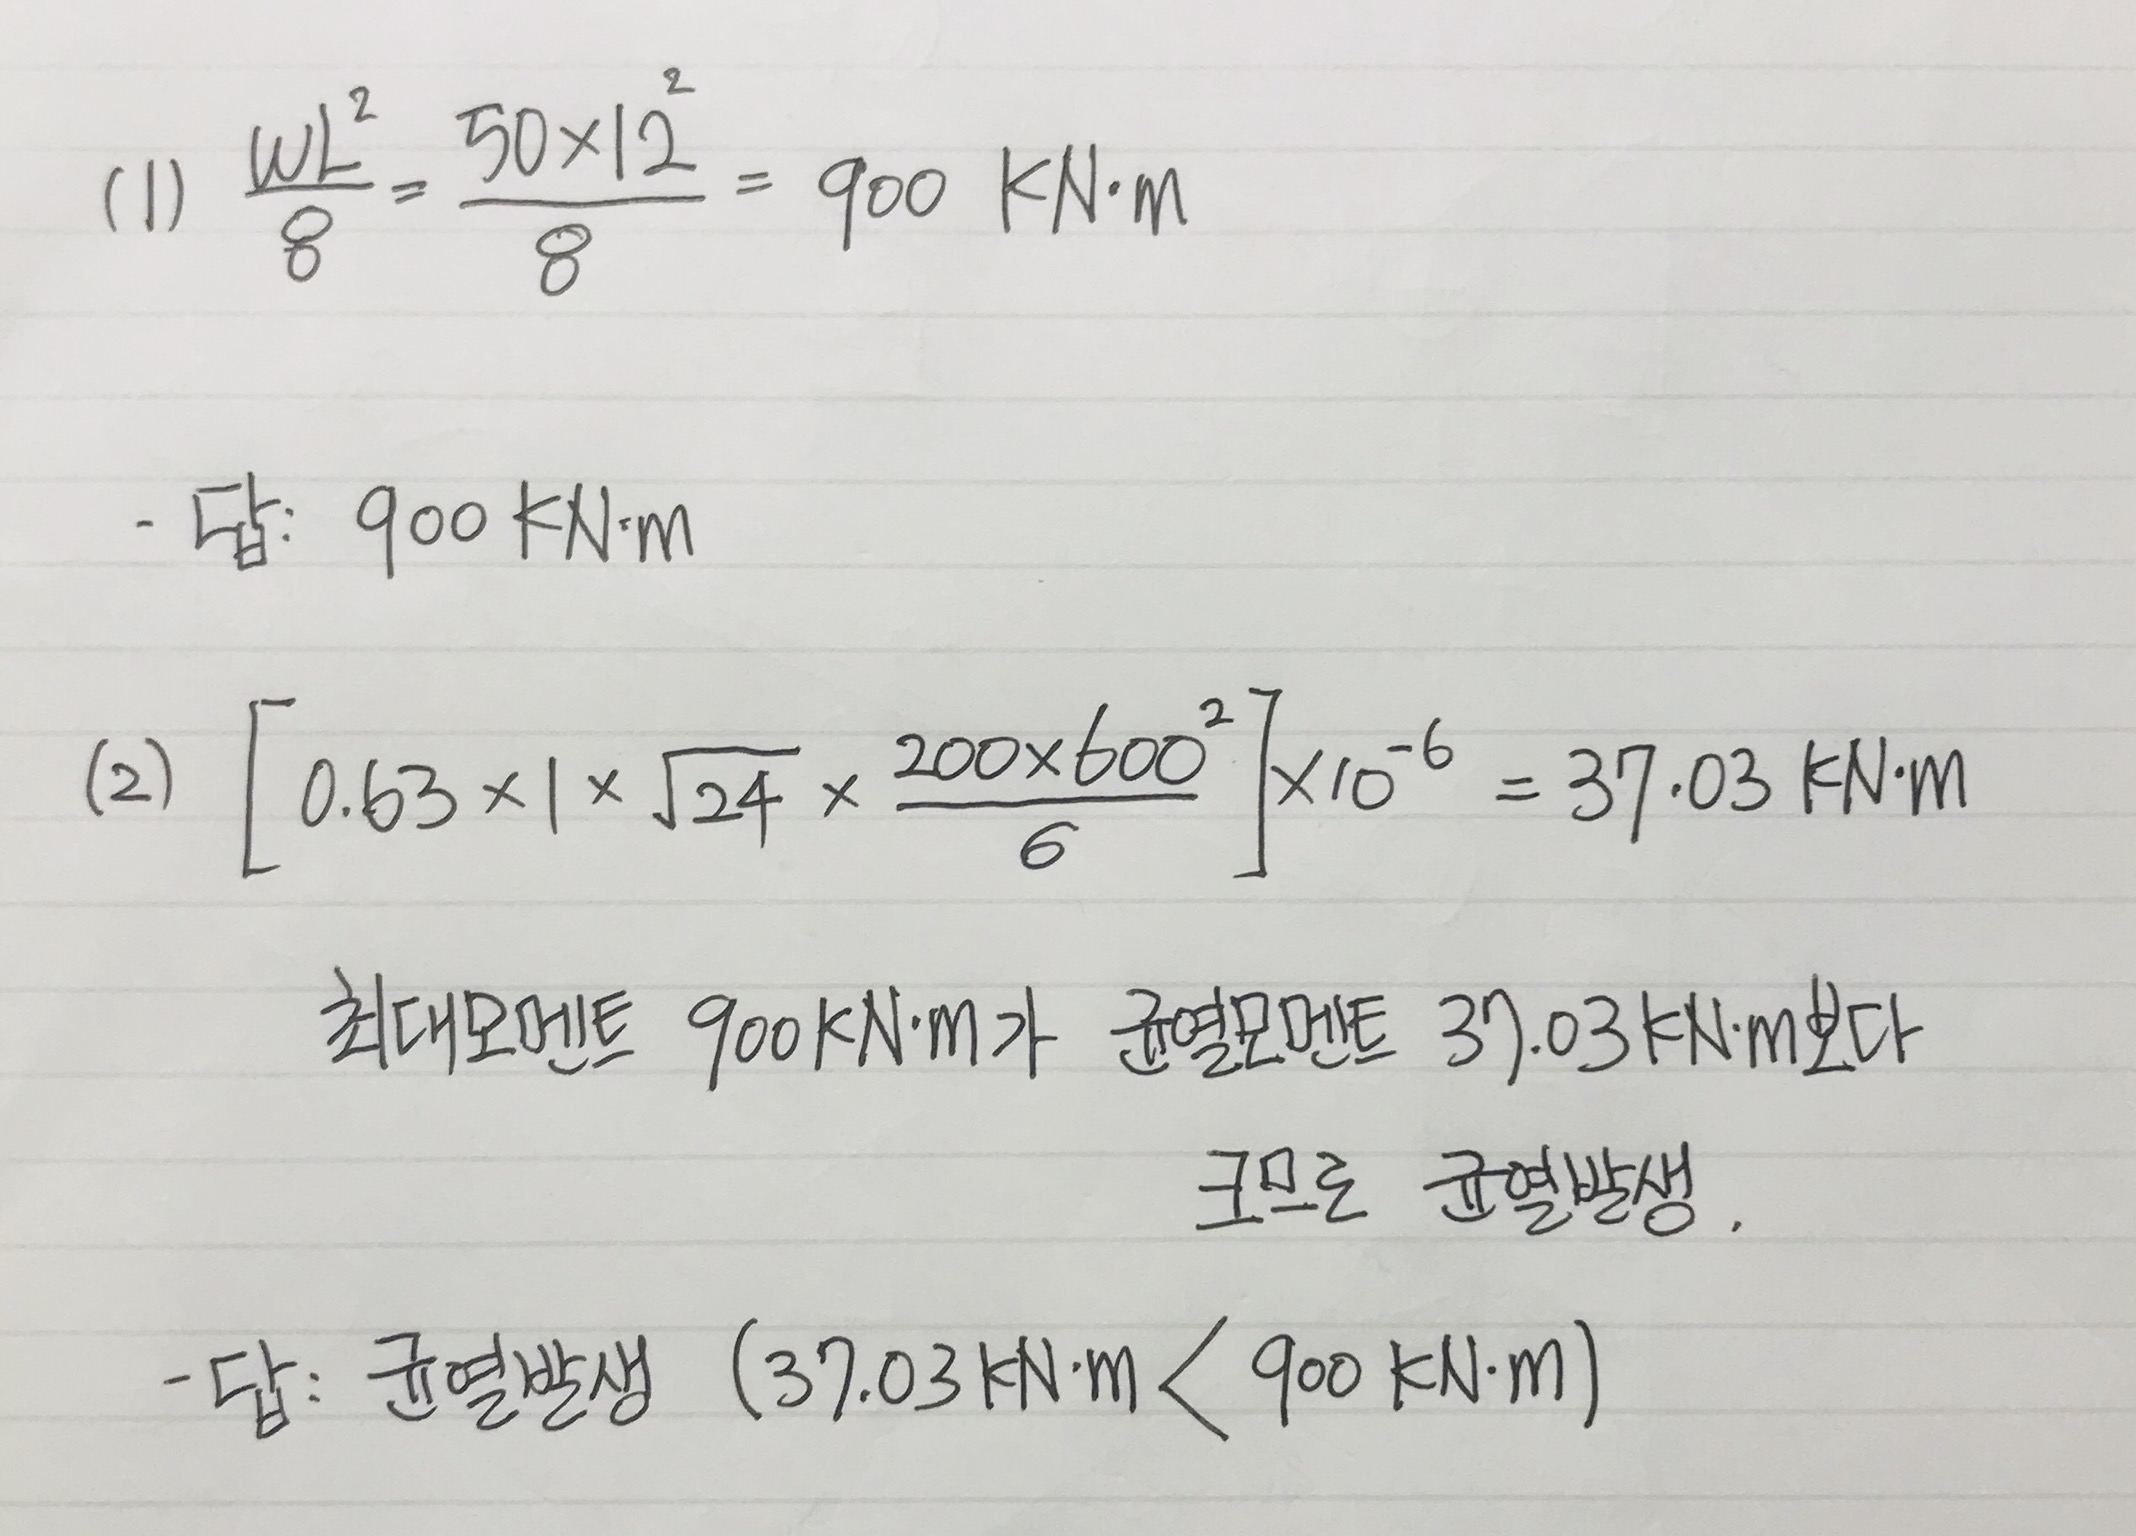 (1) WL²/8 = 50×12²/8 = 900 KN·m
- 답: 900 KN·m
(2) [0.63 × 1 × √24 × 200×600²/6] ×10⁻⁶ = 37.03 KN·m
최대모멘트 900KN·m가 균열모멘트 37.03KN·m보다
크므로 균열발생.
- 답: 균열발생 (37.03KN·m < 900 KN·m)